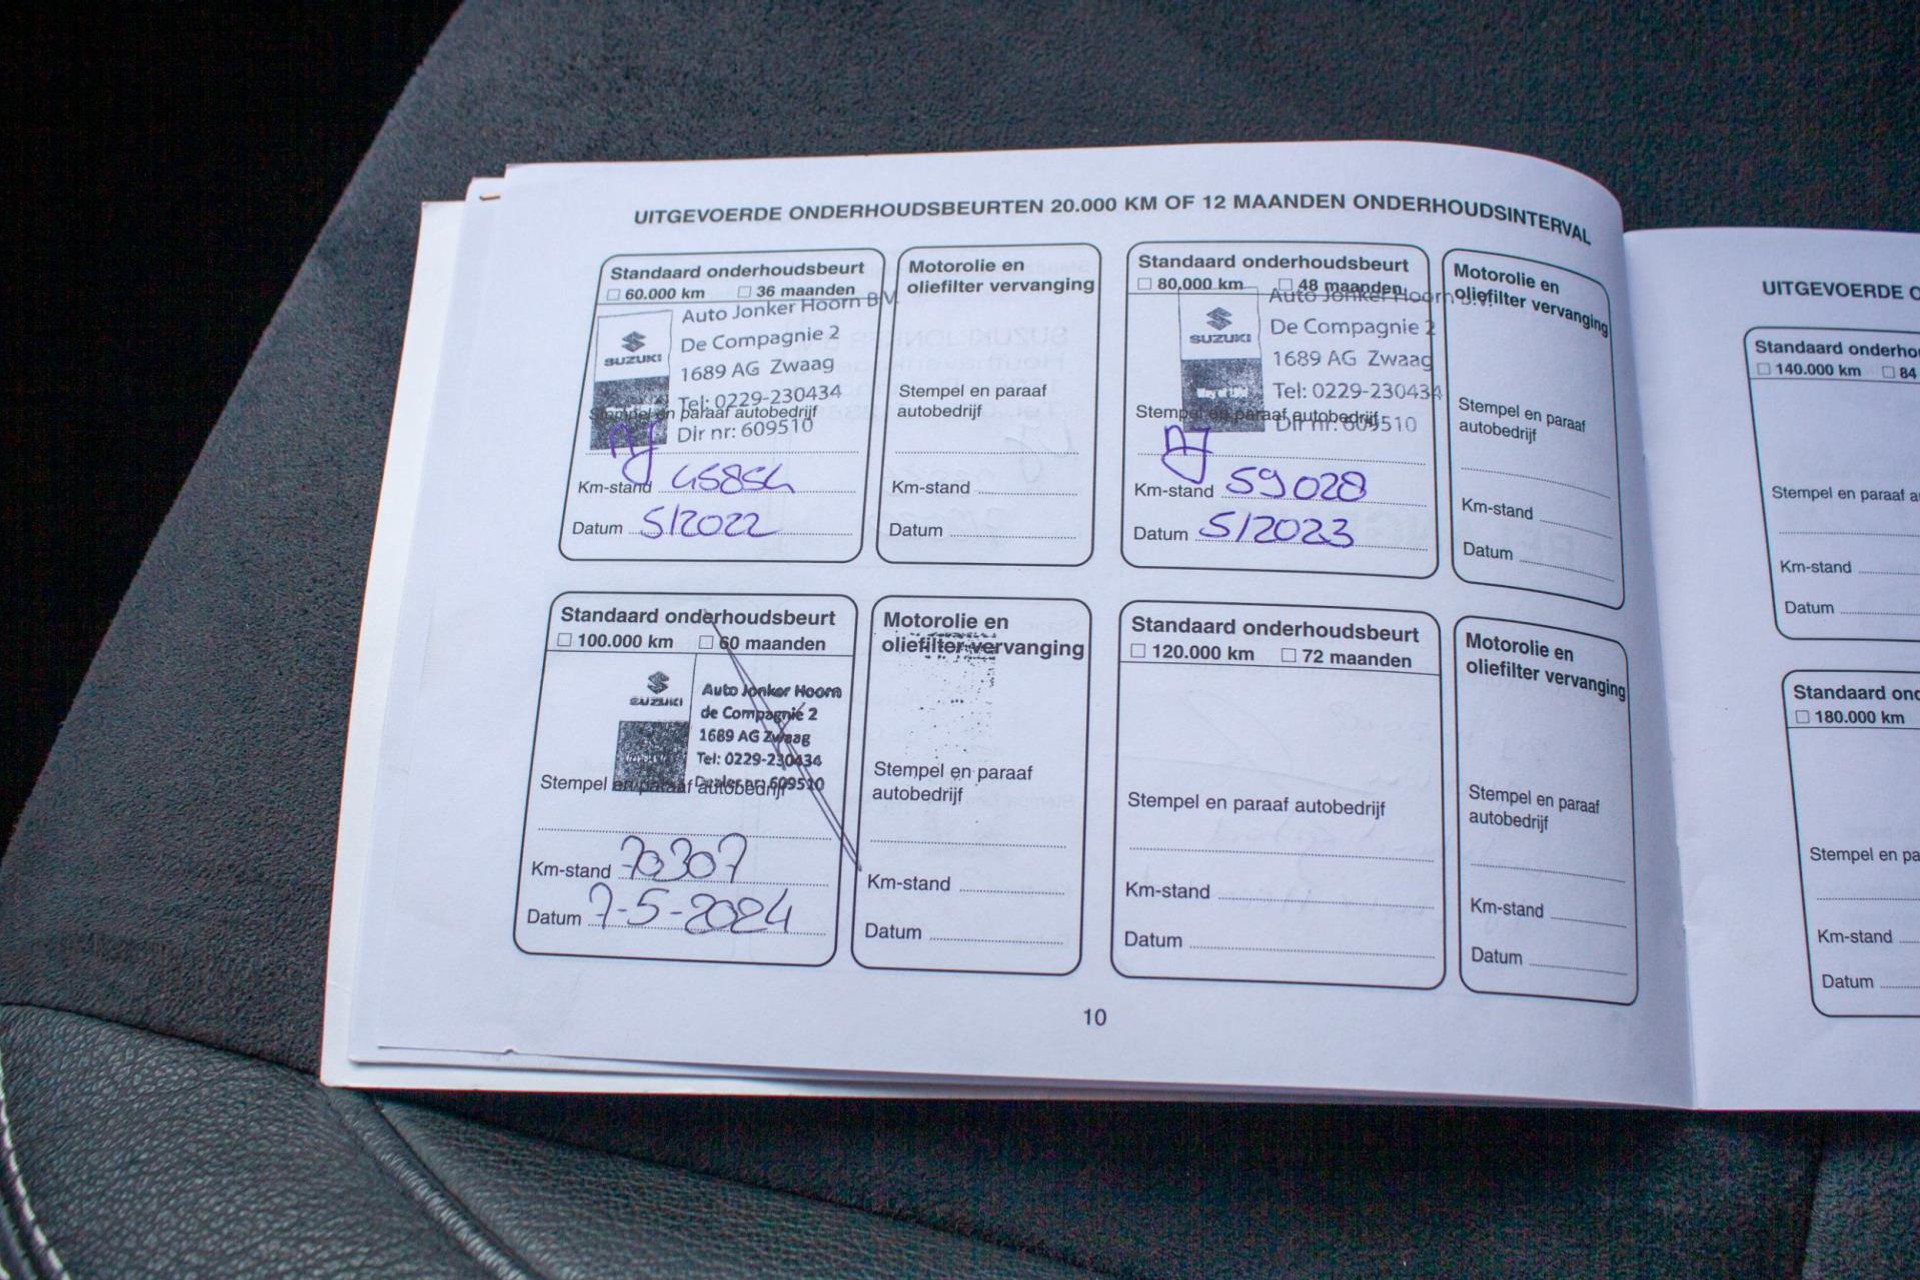 UITGEVOERDE ONDERHOUDSBEURTEN 20.000 KM OF 12 MAANDEN ONDERHOUDSINTERVAL
Standaard onderhoudsbeurt
60.000 km 36 maanden
SUZUKI
Auto Jonker Hoorn B.V.
De Compagnie 2
1689 AG Zwaag
Tel: 0229-230434
Stempel en paraaf autobedrijf
Dlr nr: 609510
Km-stand 45854
Datum 5/2022
Motorolie en
oliefilter vervanging
Stempel en paraaf
autobedrijf
Km-stand
Datum
Standaard onderhoudsbeurt
80.000 km 48 maanden
SUZUKI
Way of Life!
Auto Jonker Hoorn B.V.
De Compagnie 2
1689 AG Zwaag
Tel: 0229-230434
Stempel en paraaf autobedrijf
Dlr nr: 609510
Km-stand 59028
Datum 5/2023
Motorolie en
oliefilter vervanging
Stempel en paraaf
autobedrijf
Km-stand
Datum
Standaard onderhoudsbeurt
100.000 km 60 maanden
SUZUKI
Auto Jonker Hoorn
de Compagnie 2
1689 AG Zwaag
Tel: 0229-230434
Dealer nr: 609510
Stempel en paraaf autobedrijf
Km-stand 70307
Datum 7-5-2024
Motorolie en
oliefilter vervanging
Stempel en paraaf
autobedrijf
Km-stand
Datum
Standaard onderhoudsbeurt
120.000 km 72 maanden
Stempel en paraaf autobedrijf
Km-stand
Datum
Motorolie en
oliefilter vervanging
Stempel en paraaf
autobedrijf
Km-stand
Datum
10
UITGEVOERDE O
Standaard onderho
140.000 km 84
Stempel en paraaf a
Km-stand
Datum
Standaard ond
180.000 km
Stempel en pa
Km-stand
Datum